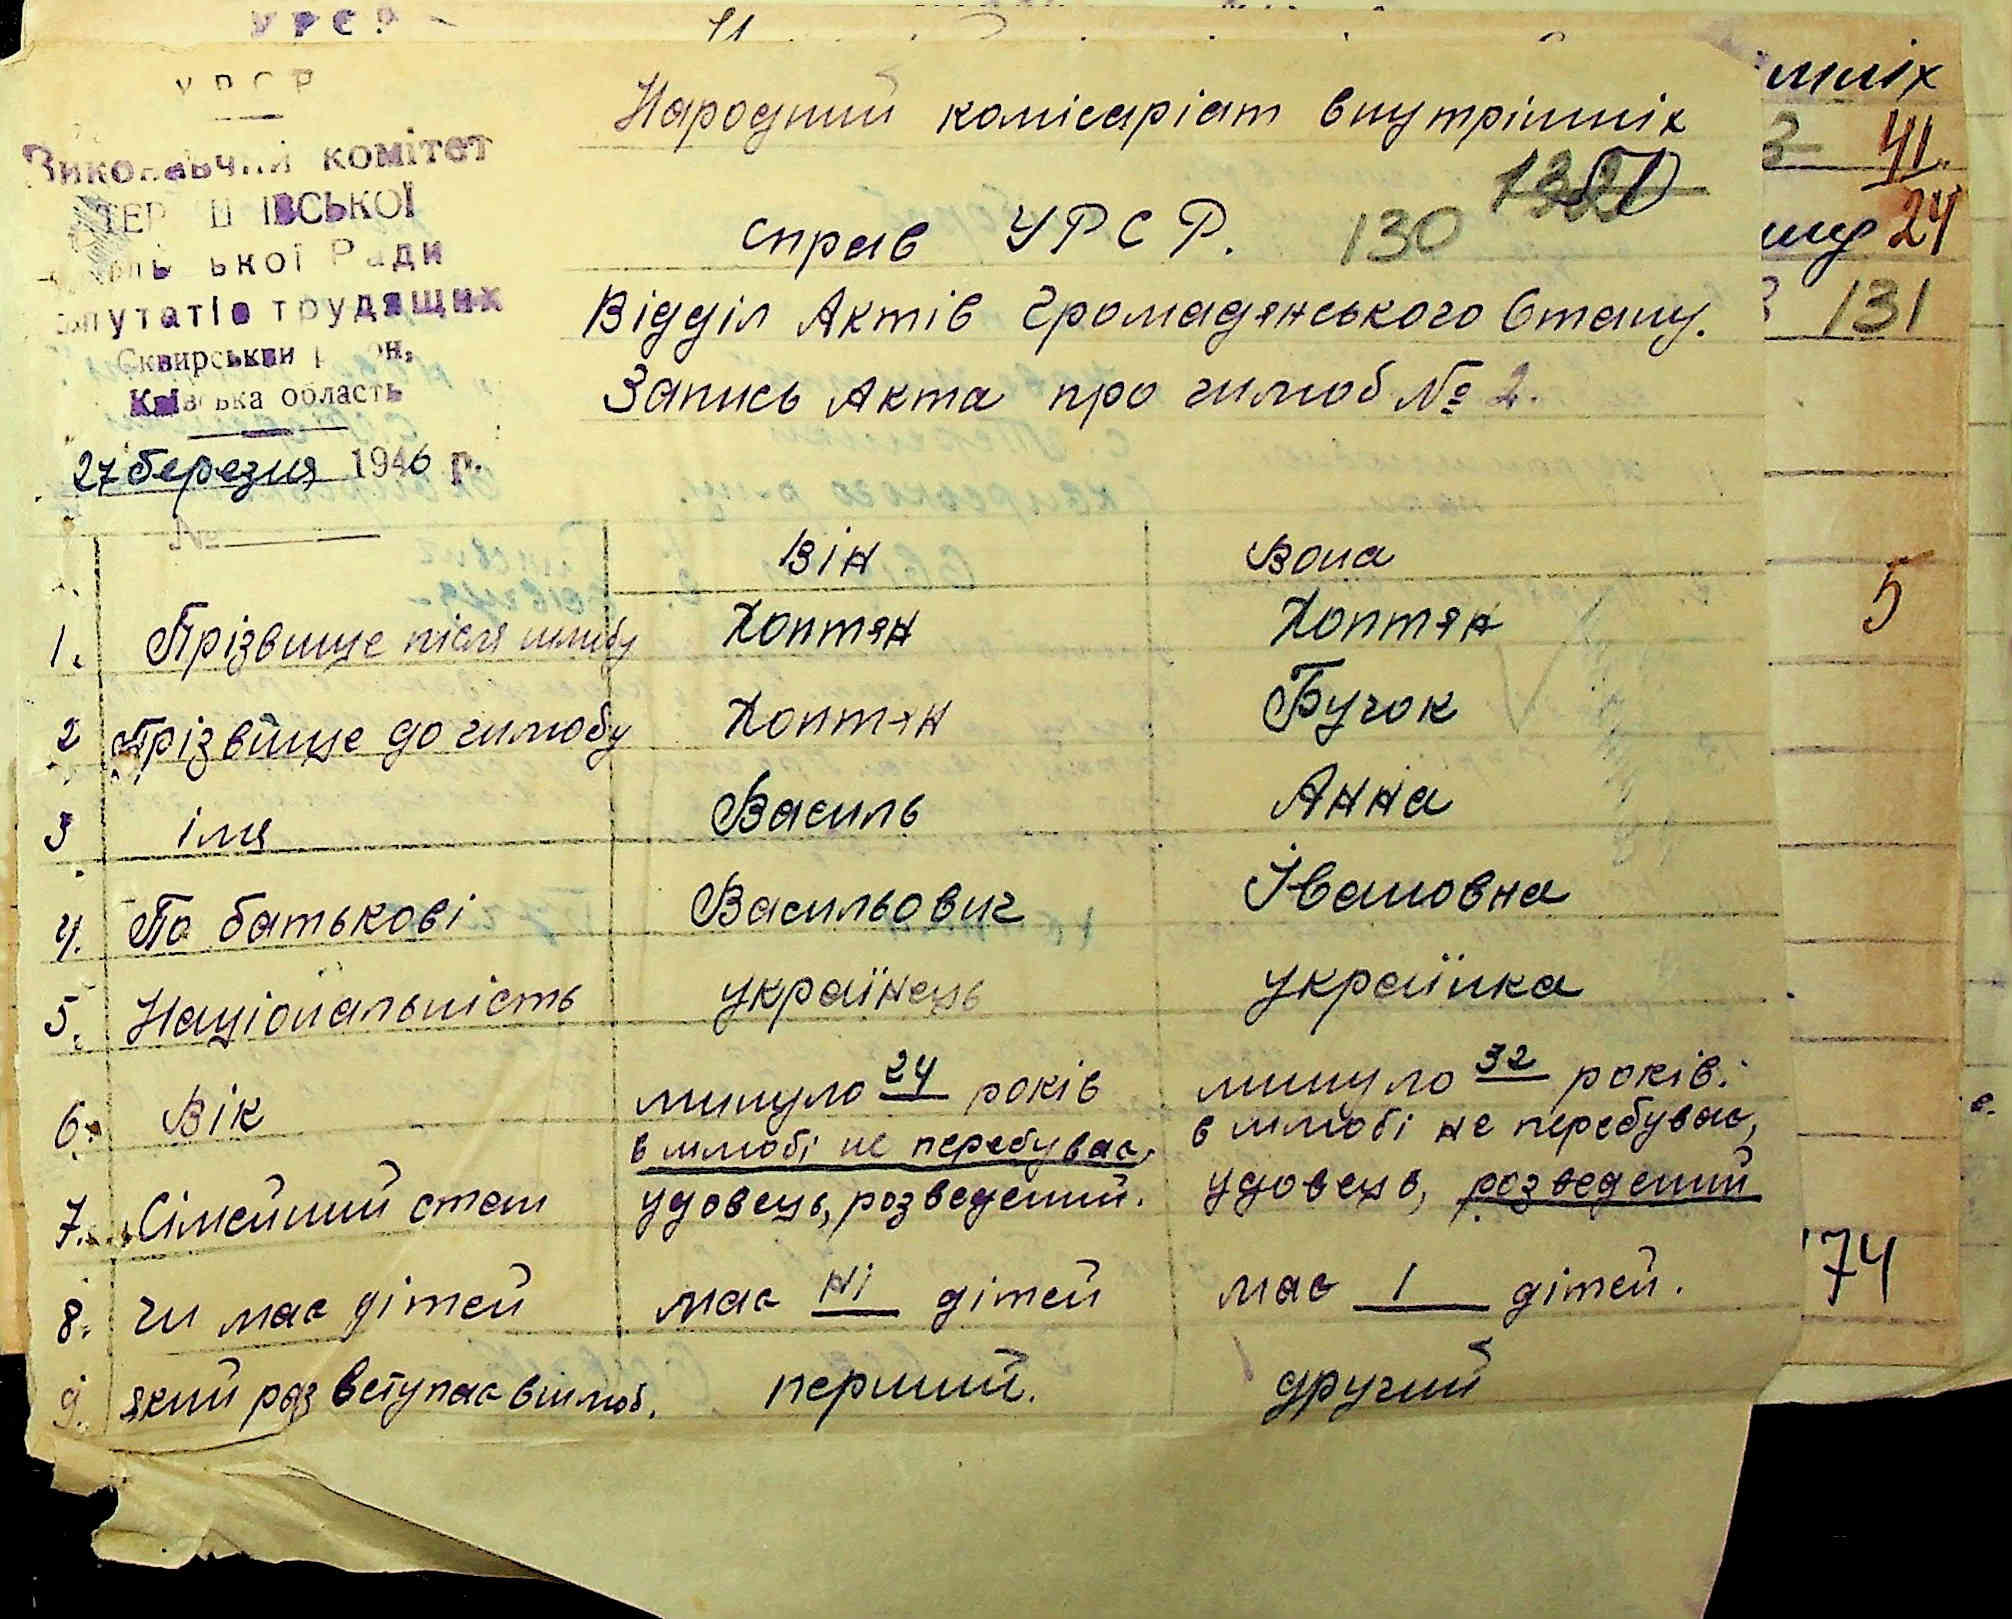 УРСР
УРСР
Народний комісаріат внутрішніх
Виконавчий комітет
справ УРСР. 130
Ради
трудящих
Відділ Актів Громадянського Стану.
Сквирський район,
Київська область
Запись Акта про шлюб № 2.
27 березня 1946 р.
№
Він Вона
1. Прізвище після шлюбу Хоптян Хоптян
2 Прізвище до шлюбу Хоптян Бучок
3 імя Василь Анна
4. По батькові Васильович Івановна
5. Національність українець українка
6. Вік минуло 24 років минуло 32 років.
7. Сімейний стан в шлюбі не перебуває, удовець, розведений. в шлюбі не перебуває, удовець, розведений
8. чи має дітей має ні дітей має 1 дітей.
9. який раз вступає в шлюб. перший. другий
41
24
131
5
74